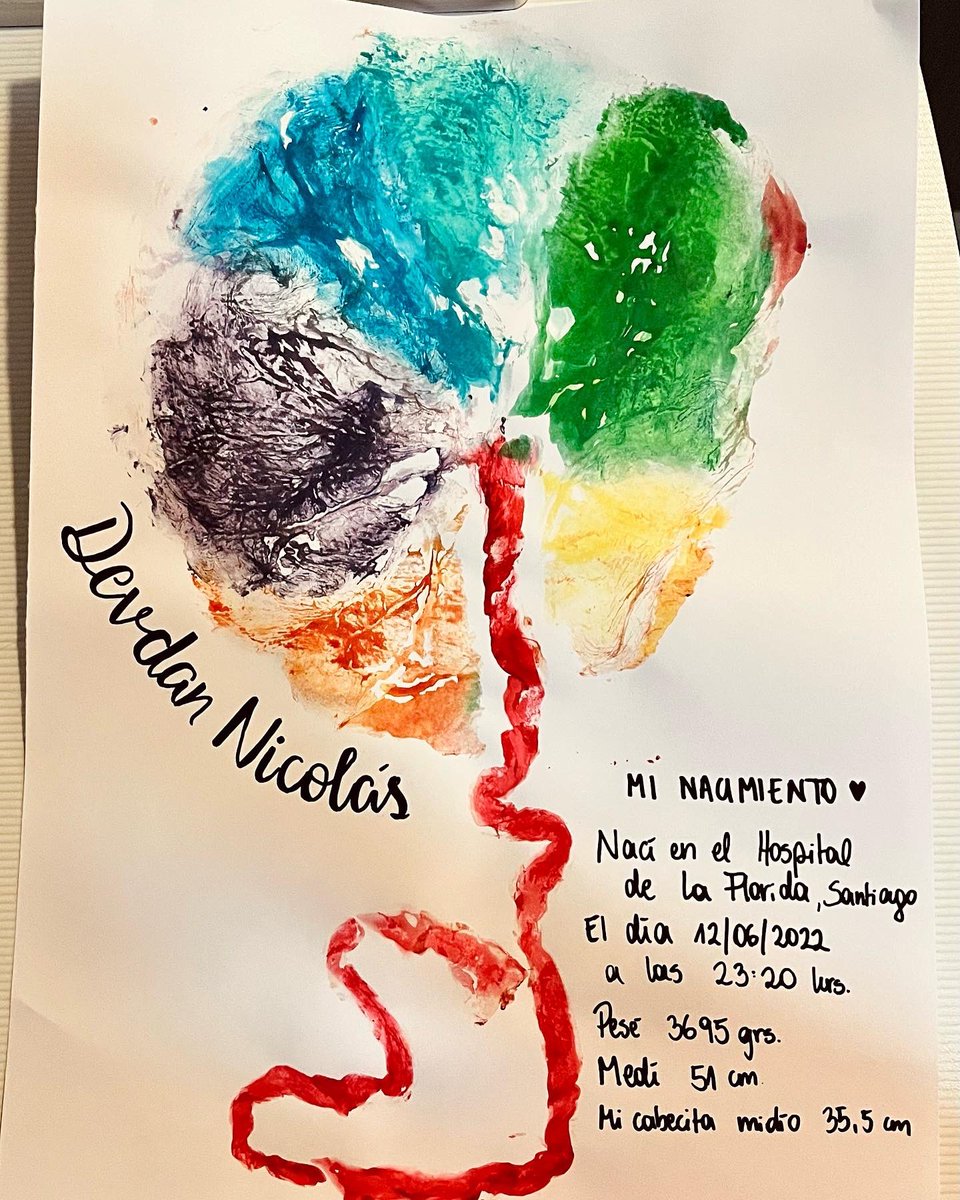 Devdan Nicolás
MI NACIMIENTO ♥
Nací en el Hospital
de la Florida, Santiago
El día 12/06/2022
a las 23:20 hrs.
Pesé 3695 grs.
Medí 51 cm.
Mi cabecita midio 35,5 cm